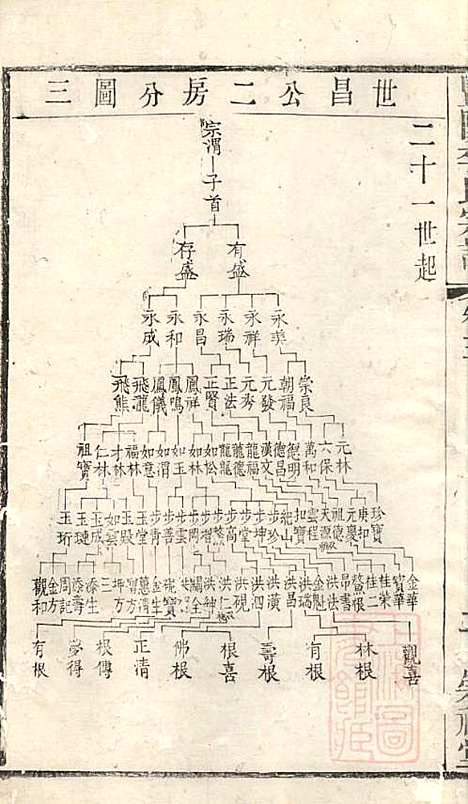 世昌公二房分圖三
二十一世起
宗渭
子首
有盛 存盛
永美 永祥 永瑞 永昌 永和 永成
宗良 朝福 元發 元秀 正法 正賢 鳳祥 鳳鳴 鳳儀 飛龍 飛熊
元林 六保 萬和 德明 德昌 漢文 龍福 龍德 龍龍 如松 如林 如玉 如渭 如意 福林 才林 仁林 祖寶
珍寶 庚扣 元慶 祖德 天源 雲程 扣寶 紀山 步珍 步坤 步堂 步高 步階 步雲 步善 步青 玉堂 玉殿 如雲 玉成 玉璉 玉珩
金華 寶華 桂榮 桂二 鰲根 帛書 洪法 金魁 洪瑞 洪昌 洪漢 洪泗 洪硯 洪仁 洪紳 關全 金生 蕙清 智方 坤方 三 添生 添壽 周記 金方 觀和
觀喜 林根 有根 壽根 根喜 佛根 正清 根傳 夢得 有根